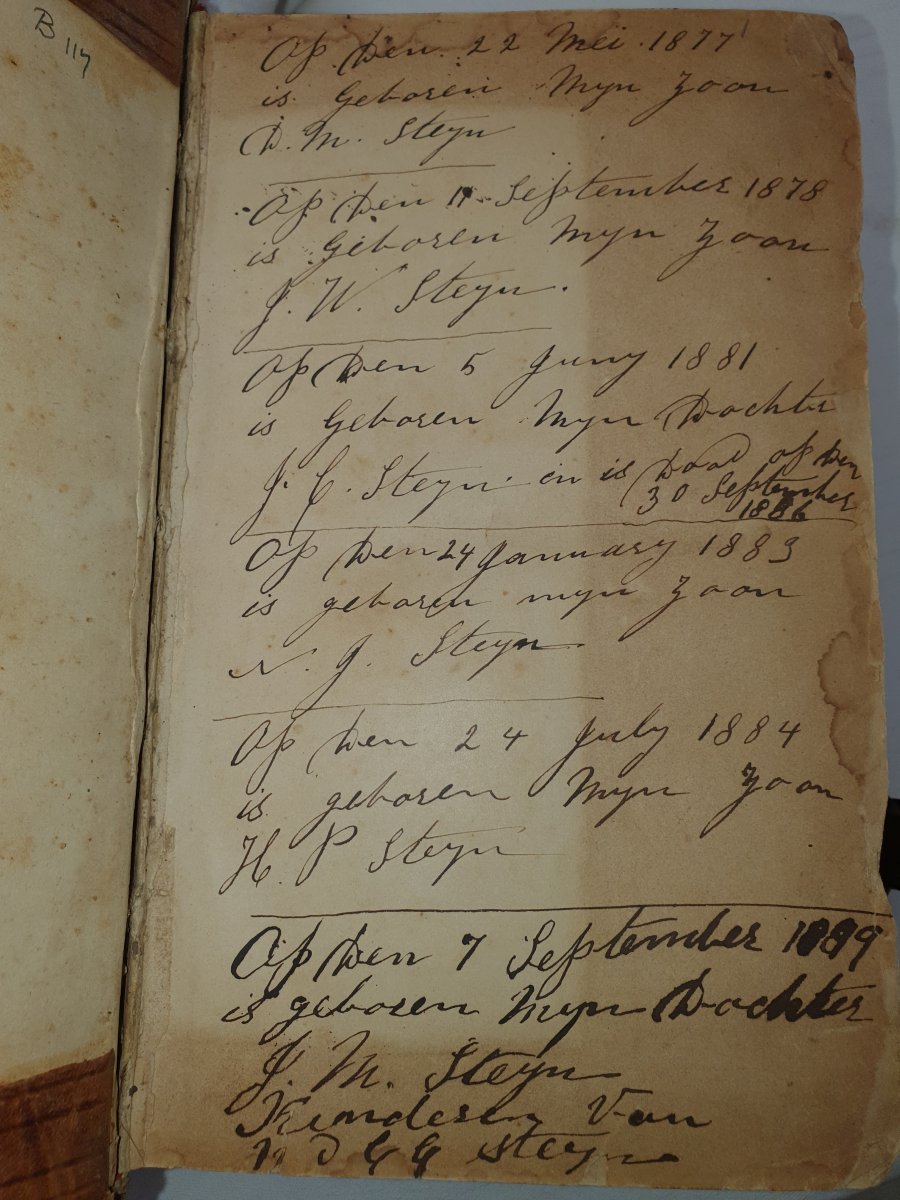 B 117
Op Den 22 Mei 1877
is Geboren Myn Zoon
D. M. Steyn
Op Den 11 September 1878
is Geboren Myn Zoon
J. W. Steyn.
Op Den 5 Juny 1881
is Geboren Myn Dochter
J. C. Steyn en is Dood op Den
30 September
1886
Op Den 24 January 1883
is geboren myn Zoon
N. J. Steyn
Op Den 24 July 1884
is geboren Myn Zoon
H. P Steyn
Op Den 7 September 1889
is geboren Myn Dochter
J. M. Steyn
Kinderen Van
Steyn